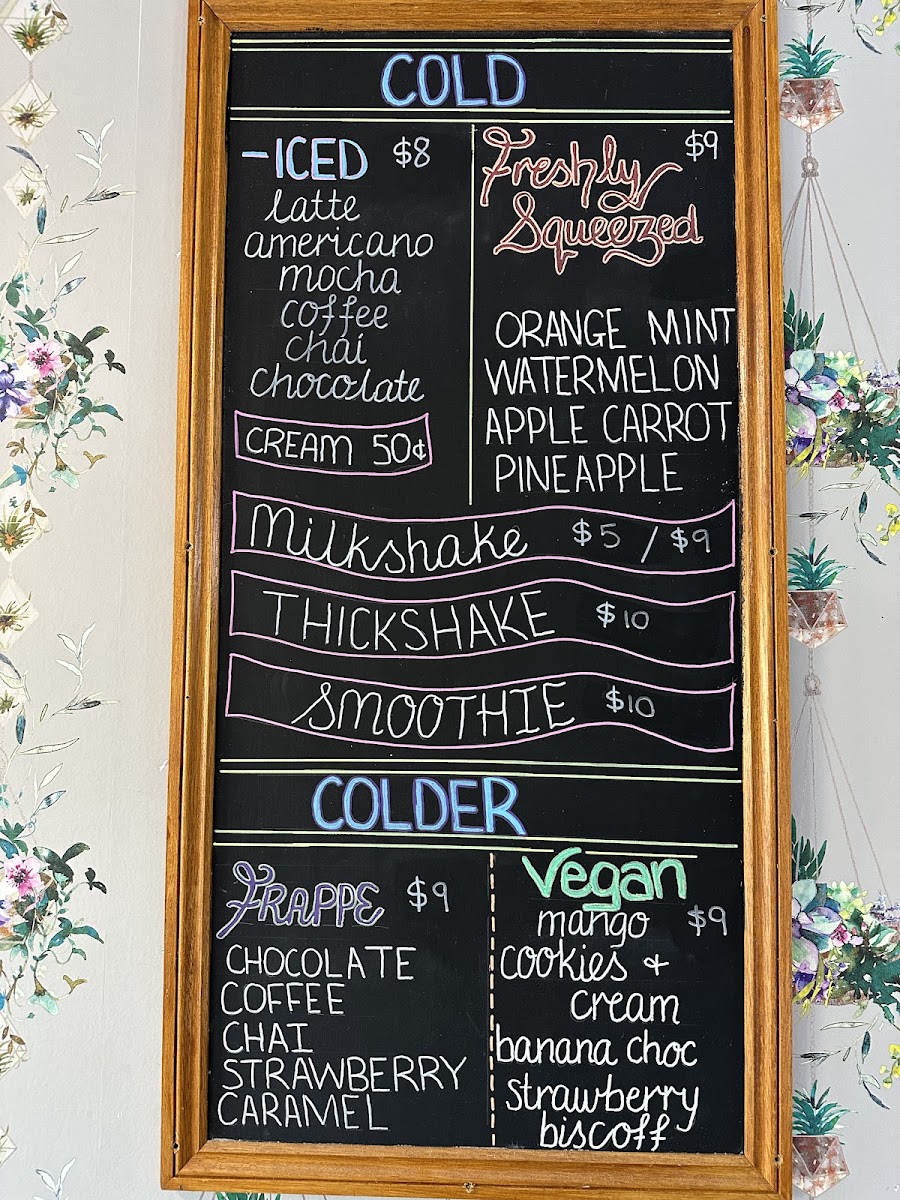 COLD
-ICED $8
latte
americano
mocha
coffee
chai
chocolate
CREAM 50¢
Freshly $9
Squeezed
ORANGE MINT
WATERMELON
APPLE CARROT
PINEAPPLE
Milkshake $5 / $9
THICKSHAKE $10
SMOOTHIE $10
COLDER
FRAPPE $9
CHOCOLATE
COFFEE
CHAI
STRAWBERRY
CARAMEL
Vegan
mango $9
cookies &
cream
banana choc
strawberry
biscoff